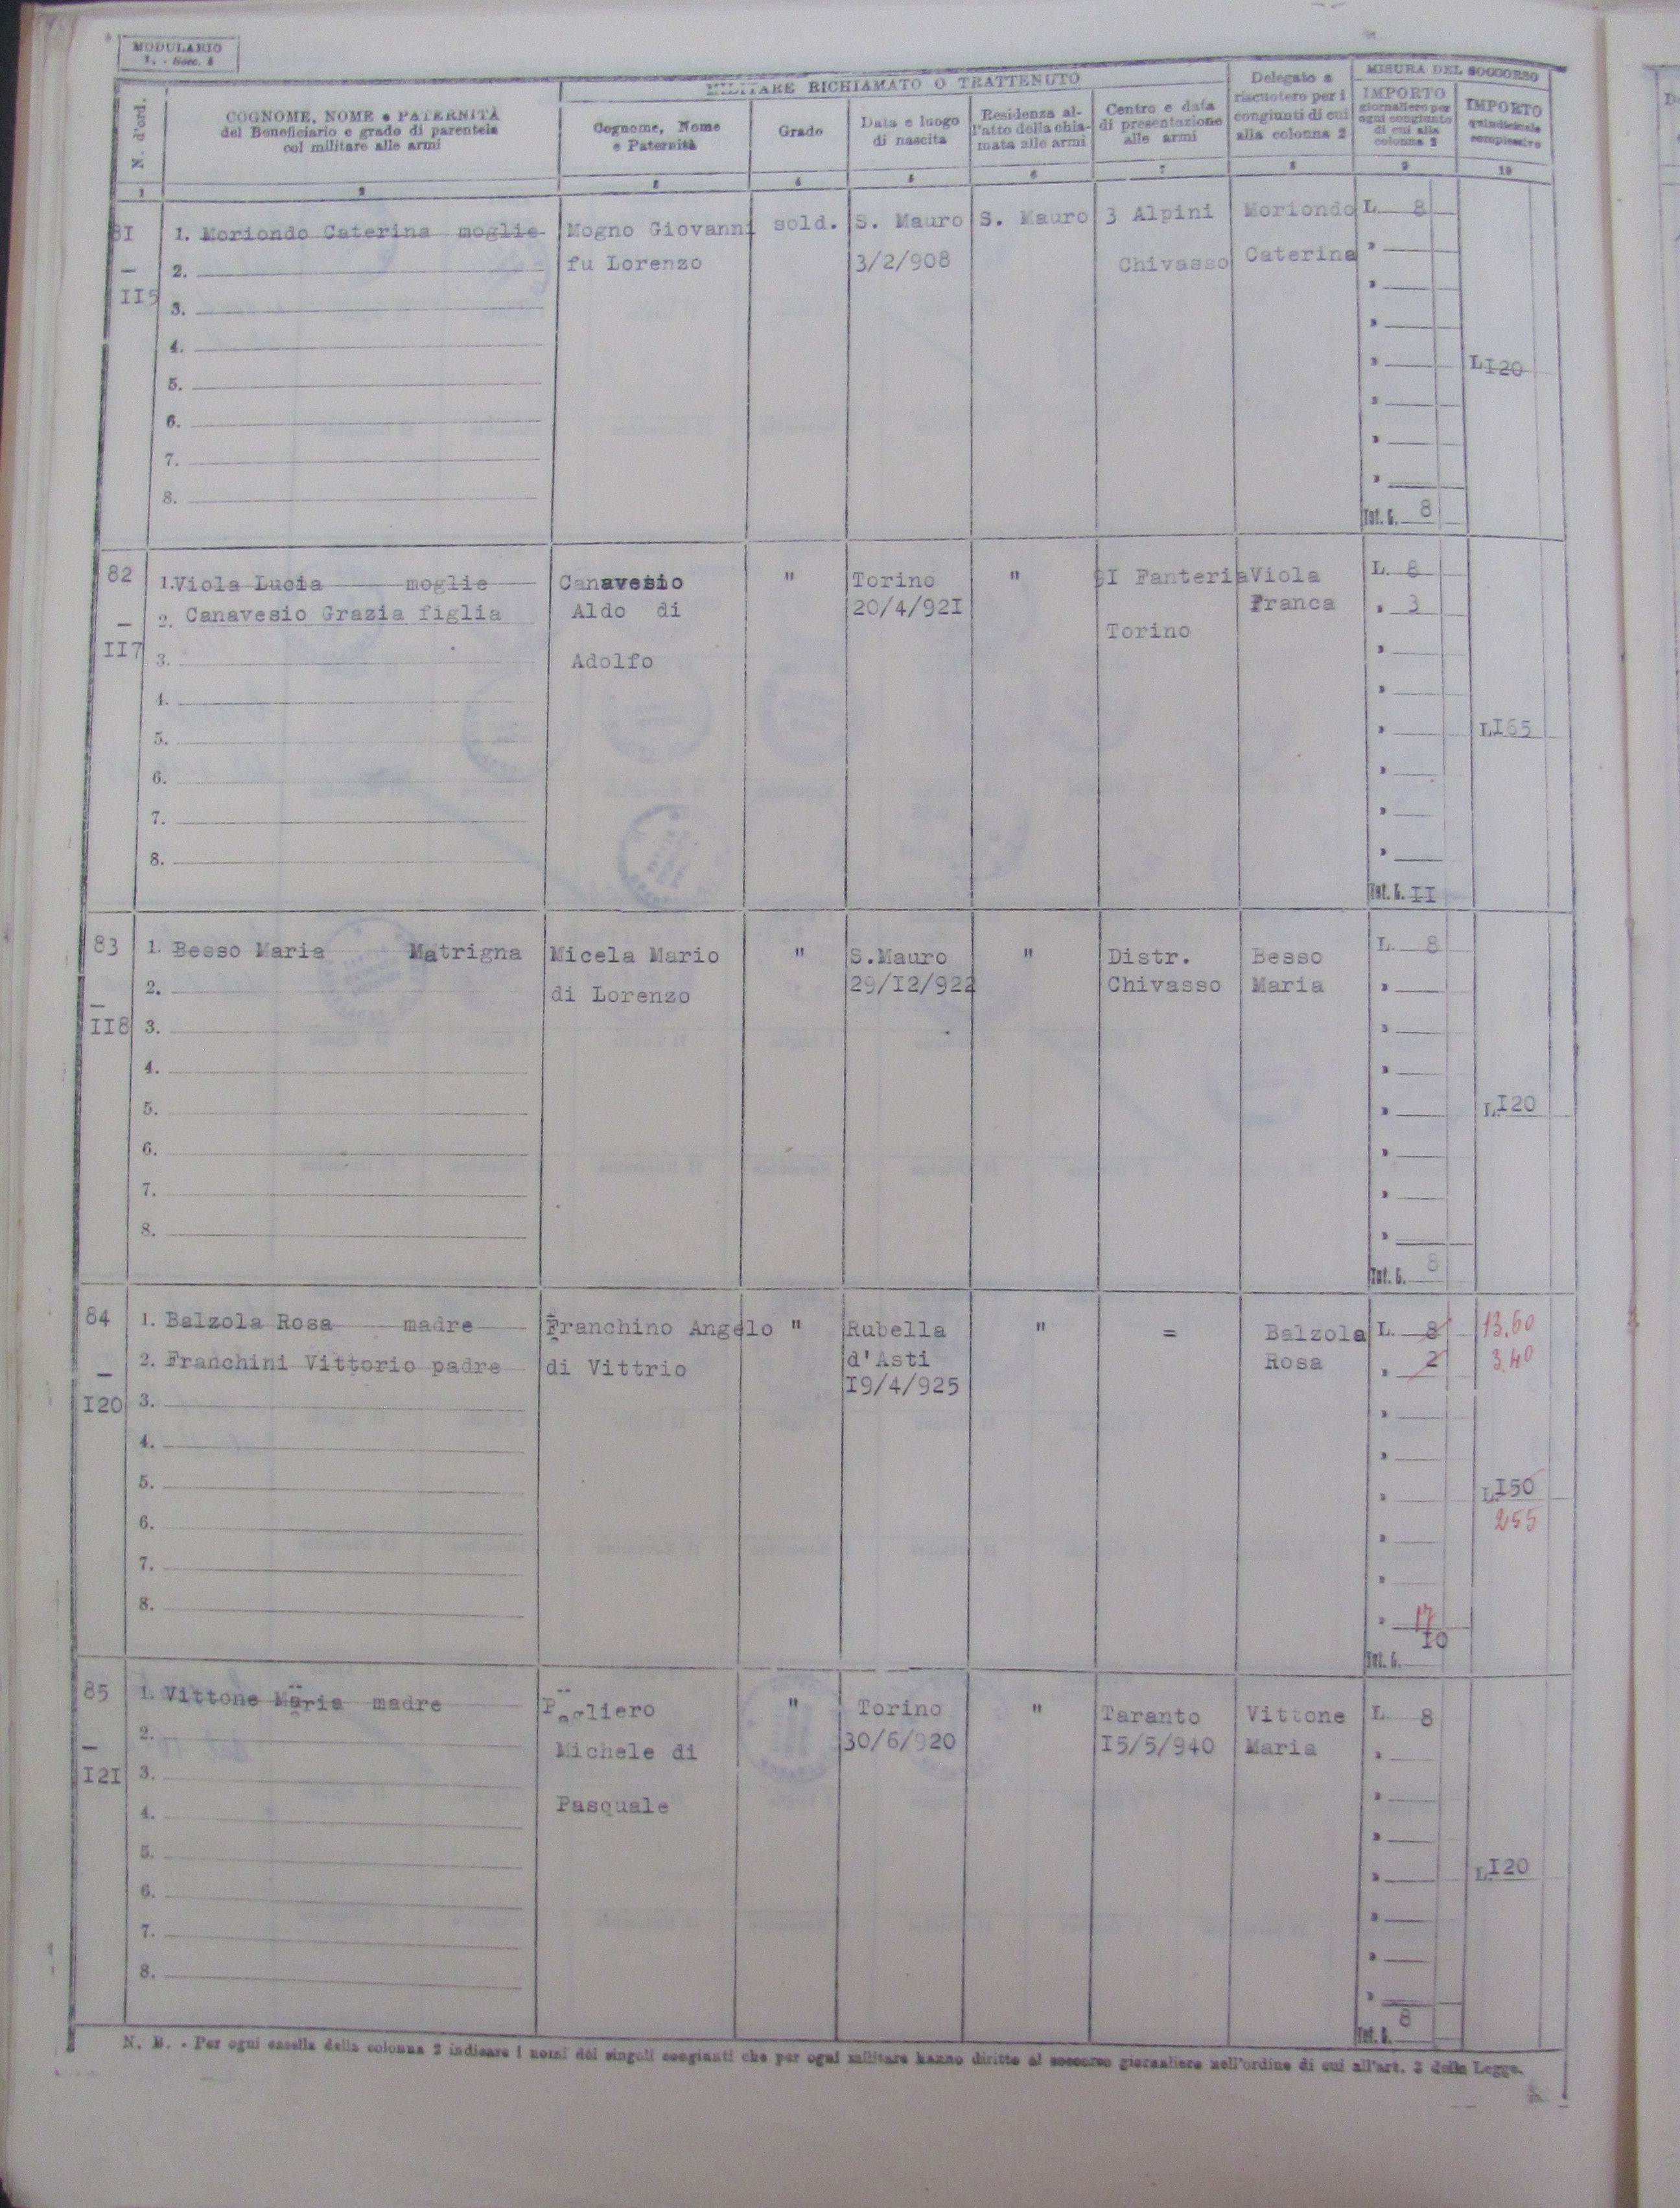 MODULARIO
MILITARE RICHIAMATO O TRATTENUTO
MISURA DEL SOCCORSO
N. d'ord.
COGNOME, NOME e PATERNITÀ
del Beneficiario e grado di parentela
col militare alle armi
Cognome, Nome
e Paternità
Grado
Data e luogo
di nascita
Residenza al-
l'atto della chia-
mata alle armi
Centro e data
di presentazione
alle armi
Delegato a
riscuotere per i
congiunti di cui
alla colonna 2
IMPORTO
giornaliero per
ogni congiunto
di cui alla
colonna 2
IMPORTO
quindicinale
complessivo
1 2 3 4 5 6 7 8 9 10
81
—
II5
1. Moriondo Caterina moglie
2.
3.
4.
5.
6.
7.
8.
Mogno Giovanni
fu Lorenzo
sold.
S. Mauro
3/2/908
S. Mauro
3 Alpini
Chivasso
Moriondo
Caterina
L. 8
Tot. G. 8
L. I20
82
—
II7
1. Viola Lucia moglie
2. Canavesio Grazia figlia
3.
4.
5.
6.
7.
8.
Canavesio
Aldo di
Adolfo
"
Torino
20/4/92I
"
9I Fanteria
Torino
Viola
Franca
L. 8
" 3
Tot. G. II
L. I65
83
—
II8
1. Besso Maria Matrigna
2.
3.
4.
5.
6.
7.
8.
Micela Mario
di Lorenzo
"
S.Mauro
29/I2/922
"
Distr.
Chivasso
Besso
Maria
L. 8
Tot. G. 8
L. I20
84
—
I20
1. Balzola Rosa madre
2. Franchini Vittorio padre
3.
4.
5.
6.
7.
8.
Franchino Angelo
di Vittrio
"
Rubella
d'Asti
I9/4/925
"
=
Balzola
Rosa
L. 8 13.60
" 2 3.40
17
I0
Tot. G.
L. I50
255
85
—
I2I
1. Vittone Maria madre
2.
3.
4.
5.
6.
7.
8.
Pagliero
Michele di
Pasquale
"
Torino
30/6/920
"
Taranto
I5/5/940
Vittone
Maria
L. 8
Tot. G. 8
L. I20
N. B. - Per ogni casella della colonna 2 indicare i nomi dei singoli congiunti che per ogni militare hanno diritto al soccorso giornaliero nell'ordine di cui all'art. 3 della Legge.